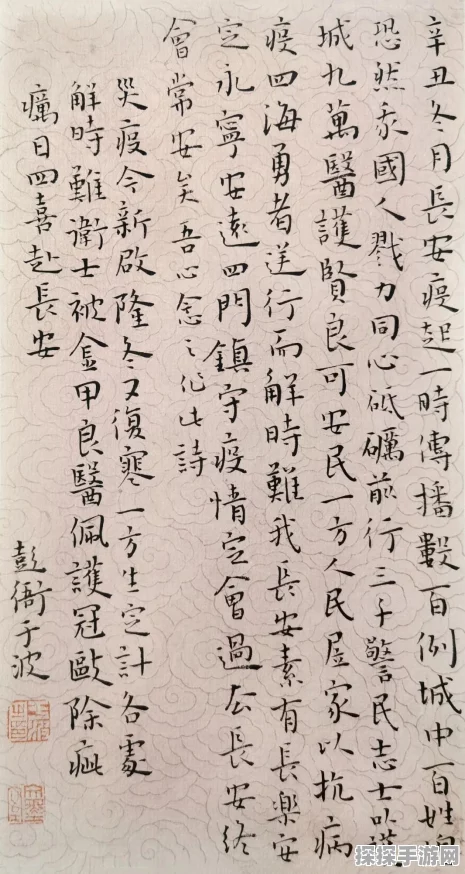 辛丑冬月長安疫起一時傳播數百例城中百姓
恐然我國人戮力同心砥礪前行三千警民志士以
城九萬醫護賢良可安民一方人民居家以抗病
疫四海勇者逆行而解時難我長安素有長樂安
定永寧安遠四門鎮守疫情定會過去長安終
會常安矣吾心念之作此詩
災疫今新啟隆冬又復寒一方生定計各處
解時難衛士被金甲良醫佩護冠歐除疵
癘日四喜赴長安
彭衙于波
探探手游网